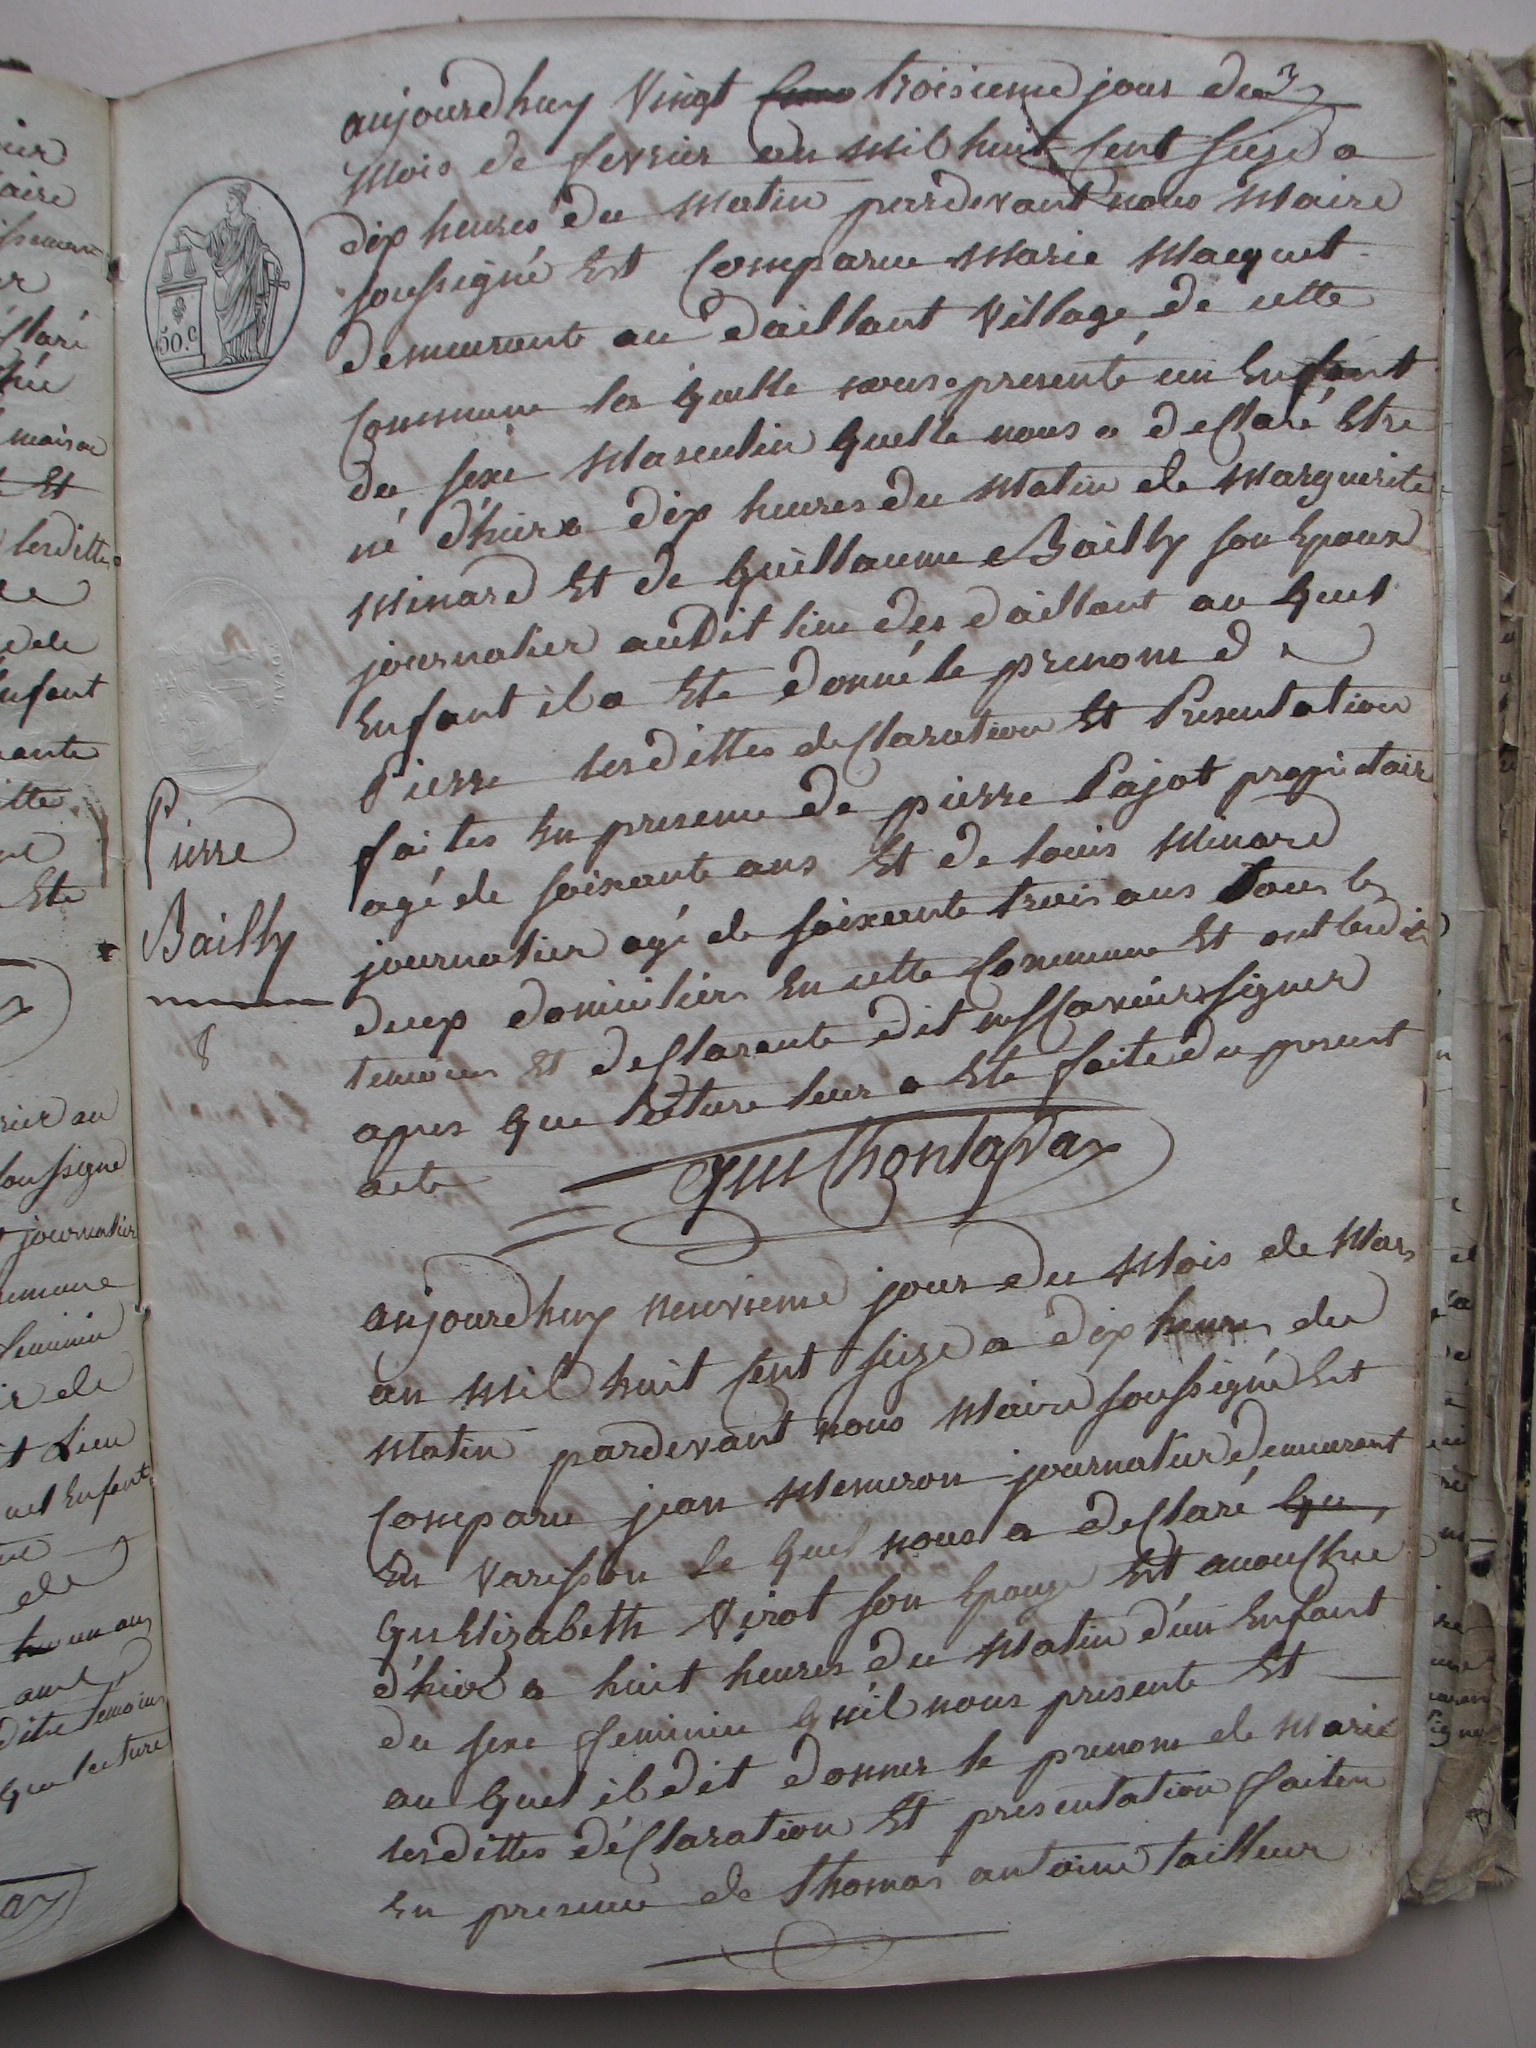 aujourdhuy vingt troisieme jour du
mois de fevrier an mil huit cent seize a
dix heures du matin pardevant nous maire
soussigné Est comparue marie macquet
demeurante au daillant village de cette
commune la quelle nous presenté un Enfant
du sexe masculin quelle nous a declaré Etre
né d'hier a dix heures du matin de marguerite
minard Et de guillaume Bailly son Epoux
journalier audit lieu des daillant au quel
Enfant il a Ete donné le prenom de
Pierre lesdittes declaration Et Presentation
faites En presence de pierre Pajot proprietaire
agé de soixante ans Et de louis minard
journalier agé de soixante trois ans tous les
deux domiciliers En cette commune Et ont lesdits
temoins Et declarante dit ne scavoir signer
apres que lecture leur a Ete faite du present
acte
Pierre
Bailly
8
50.c
aujourdhuy neuvieme jour du mois de mars
an mil huit cent seize a dix heures du
matin pardevant nous maire soussigné Est
comparu jean memeron journalier demeurant
En varisson le quel nous a declaré que
quElizabeth Virot son Epouze Est anouschue
d'hier a huit heures du matin d'un Enfant
du sexe feminin qu'il nous presente Et
au quel il dit donner le prenom de marie
lesdittes déclaration Et presentation faites
En presence de thomas antoine tailleur